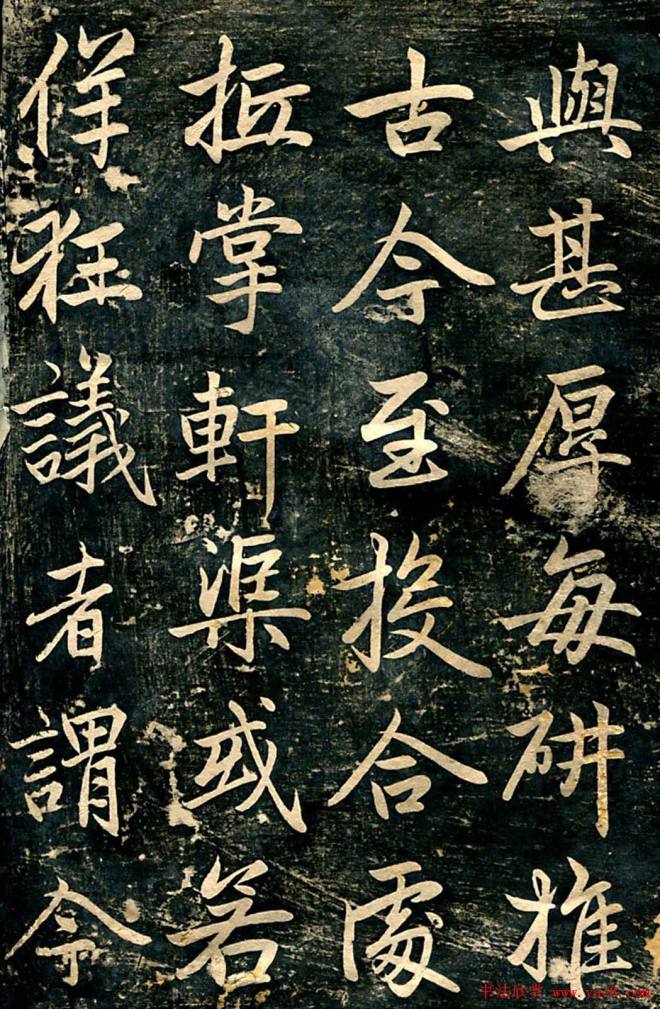 與甚厚每研推
古今至投合處
抵掌軒渠或若
佯狂議者謂今
书法欣赏 www.yac8.com